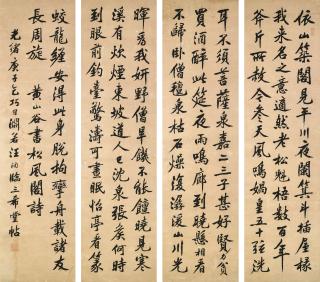 依山築閣見平川夜闌箕斗插屋椽
我來名之意適然老松魁梧數百年
斧斤所赦今參天風鳴媧皇五十弦洗
耳不須菩薩泉嘉二三子甚好賢力貧
買酒醉此筵夜雨鳴廊到曉懸相看
不歸臥僧氈泉枯石燥復潺湲山川光
暉為我妍野僧早饑不能饘曉見寒
溪有炊煙東坡道人已沈泉張侯何時
到眼前釣臺驚濤可晝眠怡亭看篆
蛟龍纏安得此身脫拘攣舟載諸友
長周旋 黃山谷書松風閣詩
光緒庚子乞巧日淵若汪洵臨三希堂帖